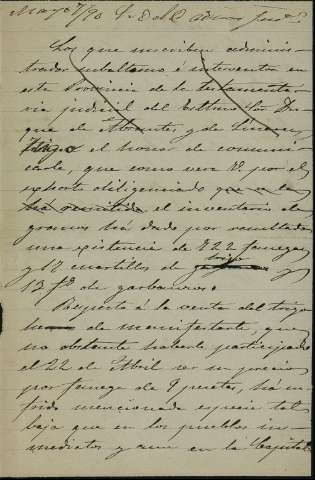 Mayo 7/90
Los que suscriben adminis-
trador subalterno é interventor en
esta Provincia de la testamenta-
ria judicial del Estmo Sor Du-
que de Abrantes y de Linares,
el honor de comuni-
carle, que como vera V. por el
exhorto diligenciado que se le
ha remitido el inventario de
granos há dado por resultado
una existencia de 722 fanegas
y 17 cuartillos de trigo y
13 fs de garbanzos.
Respecto á la venta del trigo
de manifestarle, que
no obstante haberle participado
el 22 de Abril ser su precio
por fanega de 9 pesetas, há su-
frido mencionada especie tal
baja que en los pueblos in-
mediatos y aun en la Capital